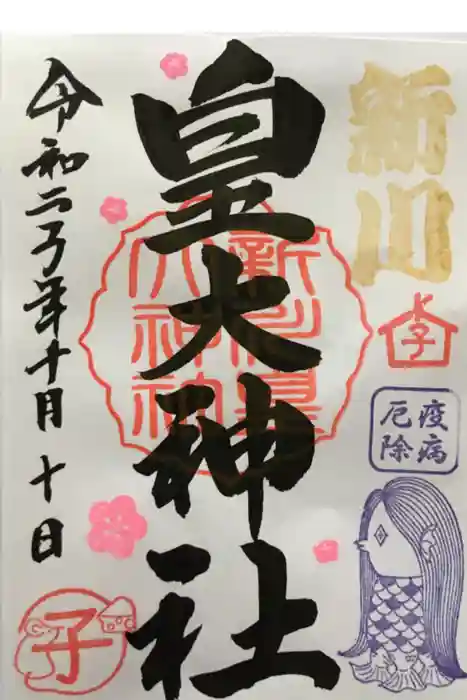 新川
子
疫病
厄除
皇大神社
新川皇
大神社
令和二年十月十日
子